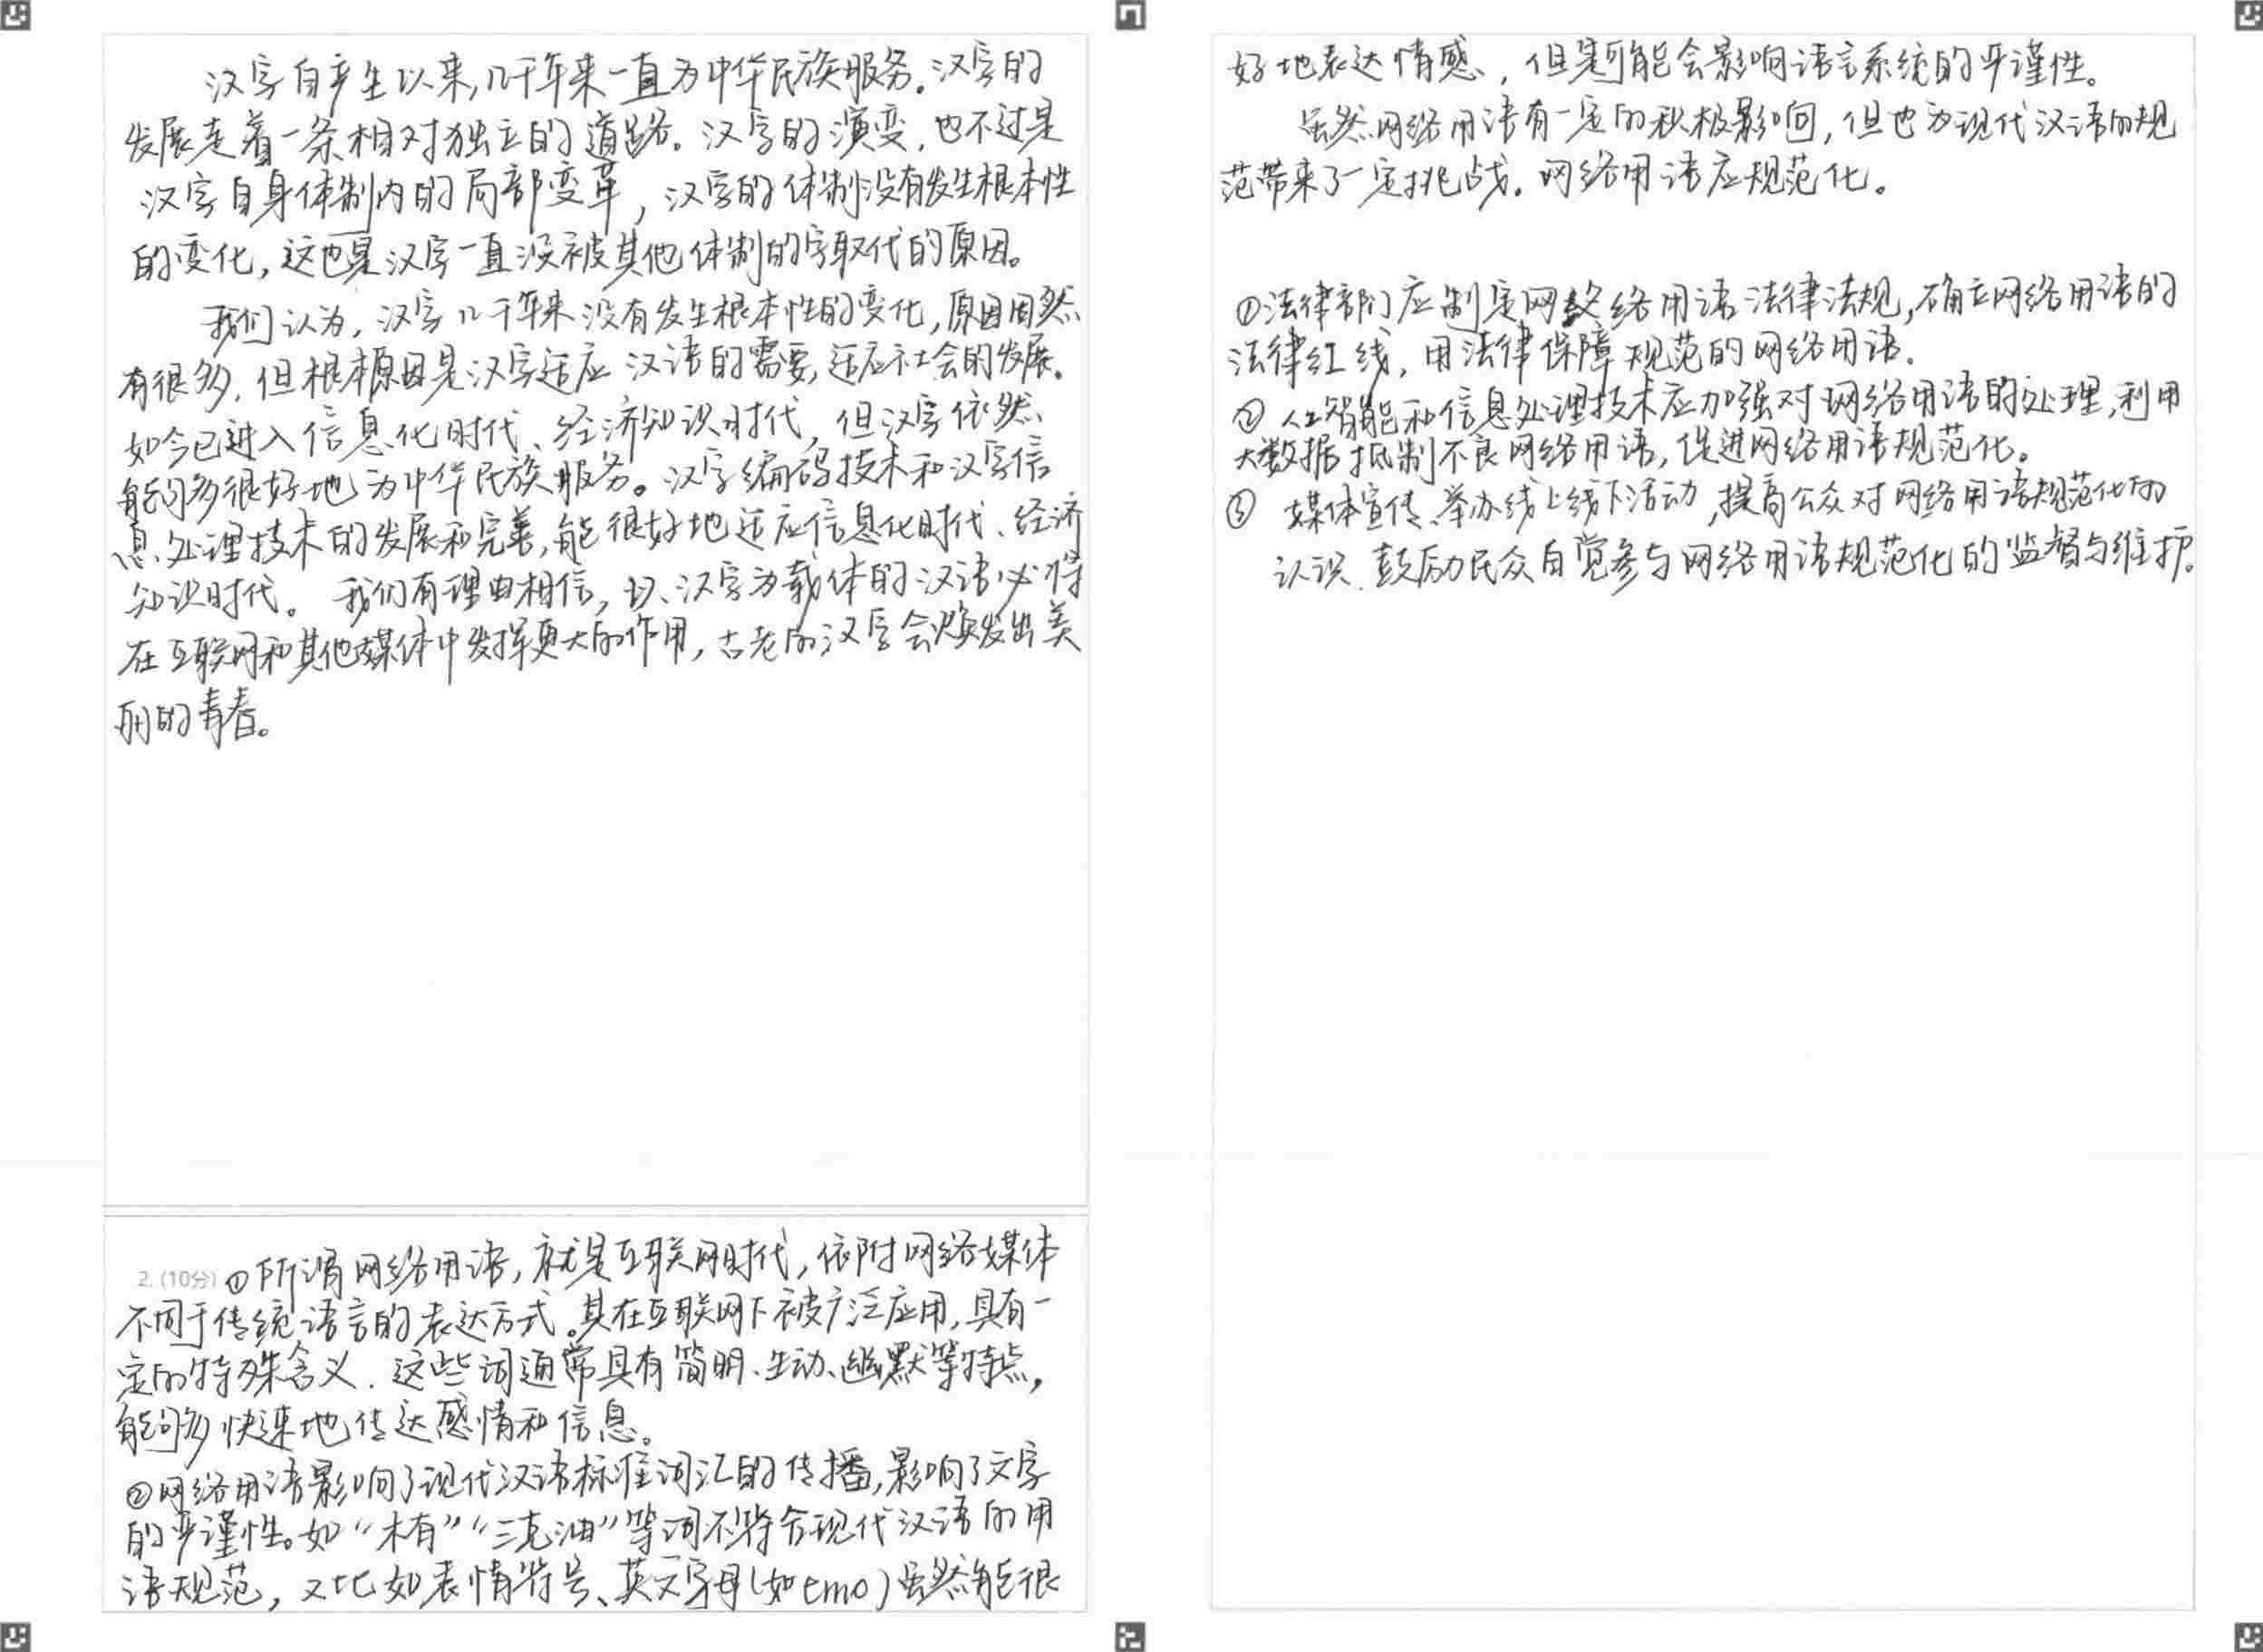 汉字自产生以来,几千年来一直为中华民族服务。汉字的
发展走着一条相对独立的道路。汉字的演变,也不过是
汉字自身体制内的局部变革,汉字的体制没有发生根本性
的变化,这也是汉字一直没被其他体制的字取代的原因。
我们认为,汉字几千年来没有发生根本性的变化,原因固然
有很多,但根本原因是汉字适应汉语的需要,适应社会的发展。
如今已进入信息化时代、经济知识时代,但汉字依然
能够很好地为中华民族服务。汉字编码技术和汉字信
息处理技术的发展和完善,能很好地适应信息化时代、经济
知识时代。我们有理由相信,以汉字为载体的汉语必将
在互联网和其他媒体中发挥更大的作用,古老的汉字会焕发出美
丽的青春。
2. (10分) ①所谓网络用语,就是互联网时代,依附网络媒体
不同于传统语言的表达方式。其在互联网下被广泛应用,具有一
定的特殊含义.这些词通常具有简明、生动、幽默等特点,
能够快速地传达感情和信息。
②网络用语影响了现代汉语标准词汇的传播,影响了文字
的严谨性。如“木有”“三克油”等词不符合现代汉语的用
语规范,又比如表情符号、英文字母(如emo)虽然能很
好地表达情感,但是可能会影响语言系统的严谨性。
虽然网络用语有一定的积极影响,但也为现代汉语的规
范带来了一定挑战。网络用语应规范化。
①法律部门应制定网络用语法律法规,确立网络用语的
法律红线,用法律保障规范的网络用语.
② 人工智能和信息处理技术应加强对网络用语的处理,利用
大数据抵制不良网络用语,促进网络用语规范化。
③ 媒体宣传、举办线上线下活动,提高公众对网络用语规范化的
认识.鼓励民众自觉参与网络用语规范化的监督与维护。